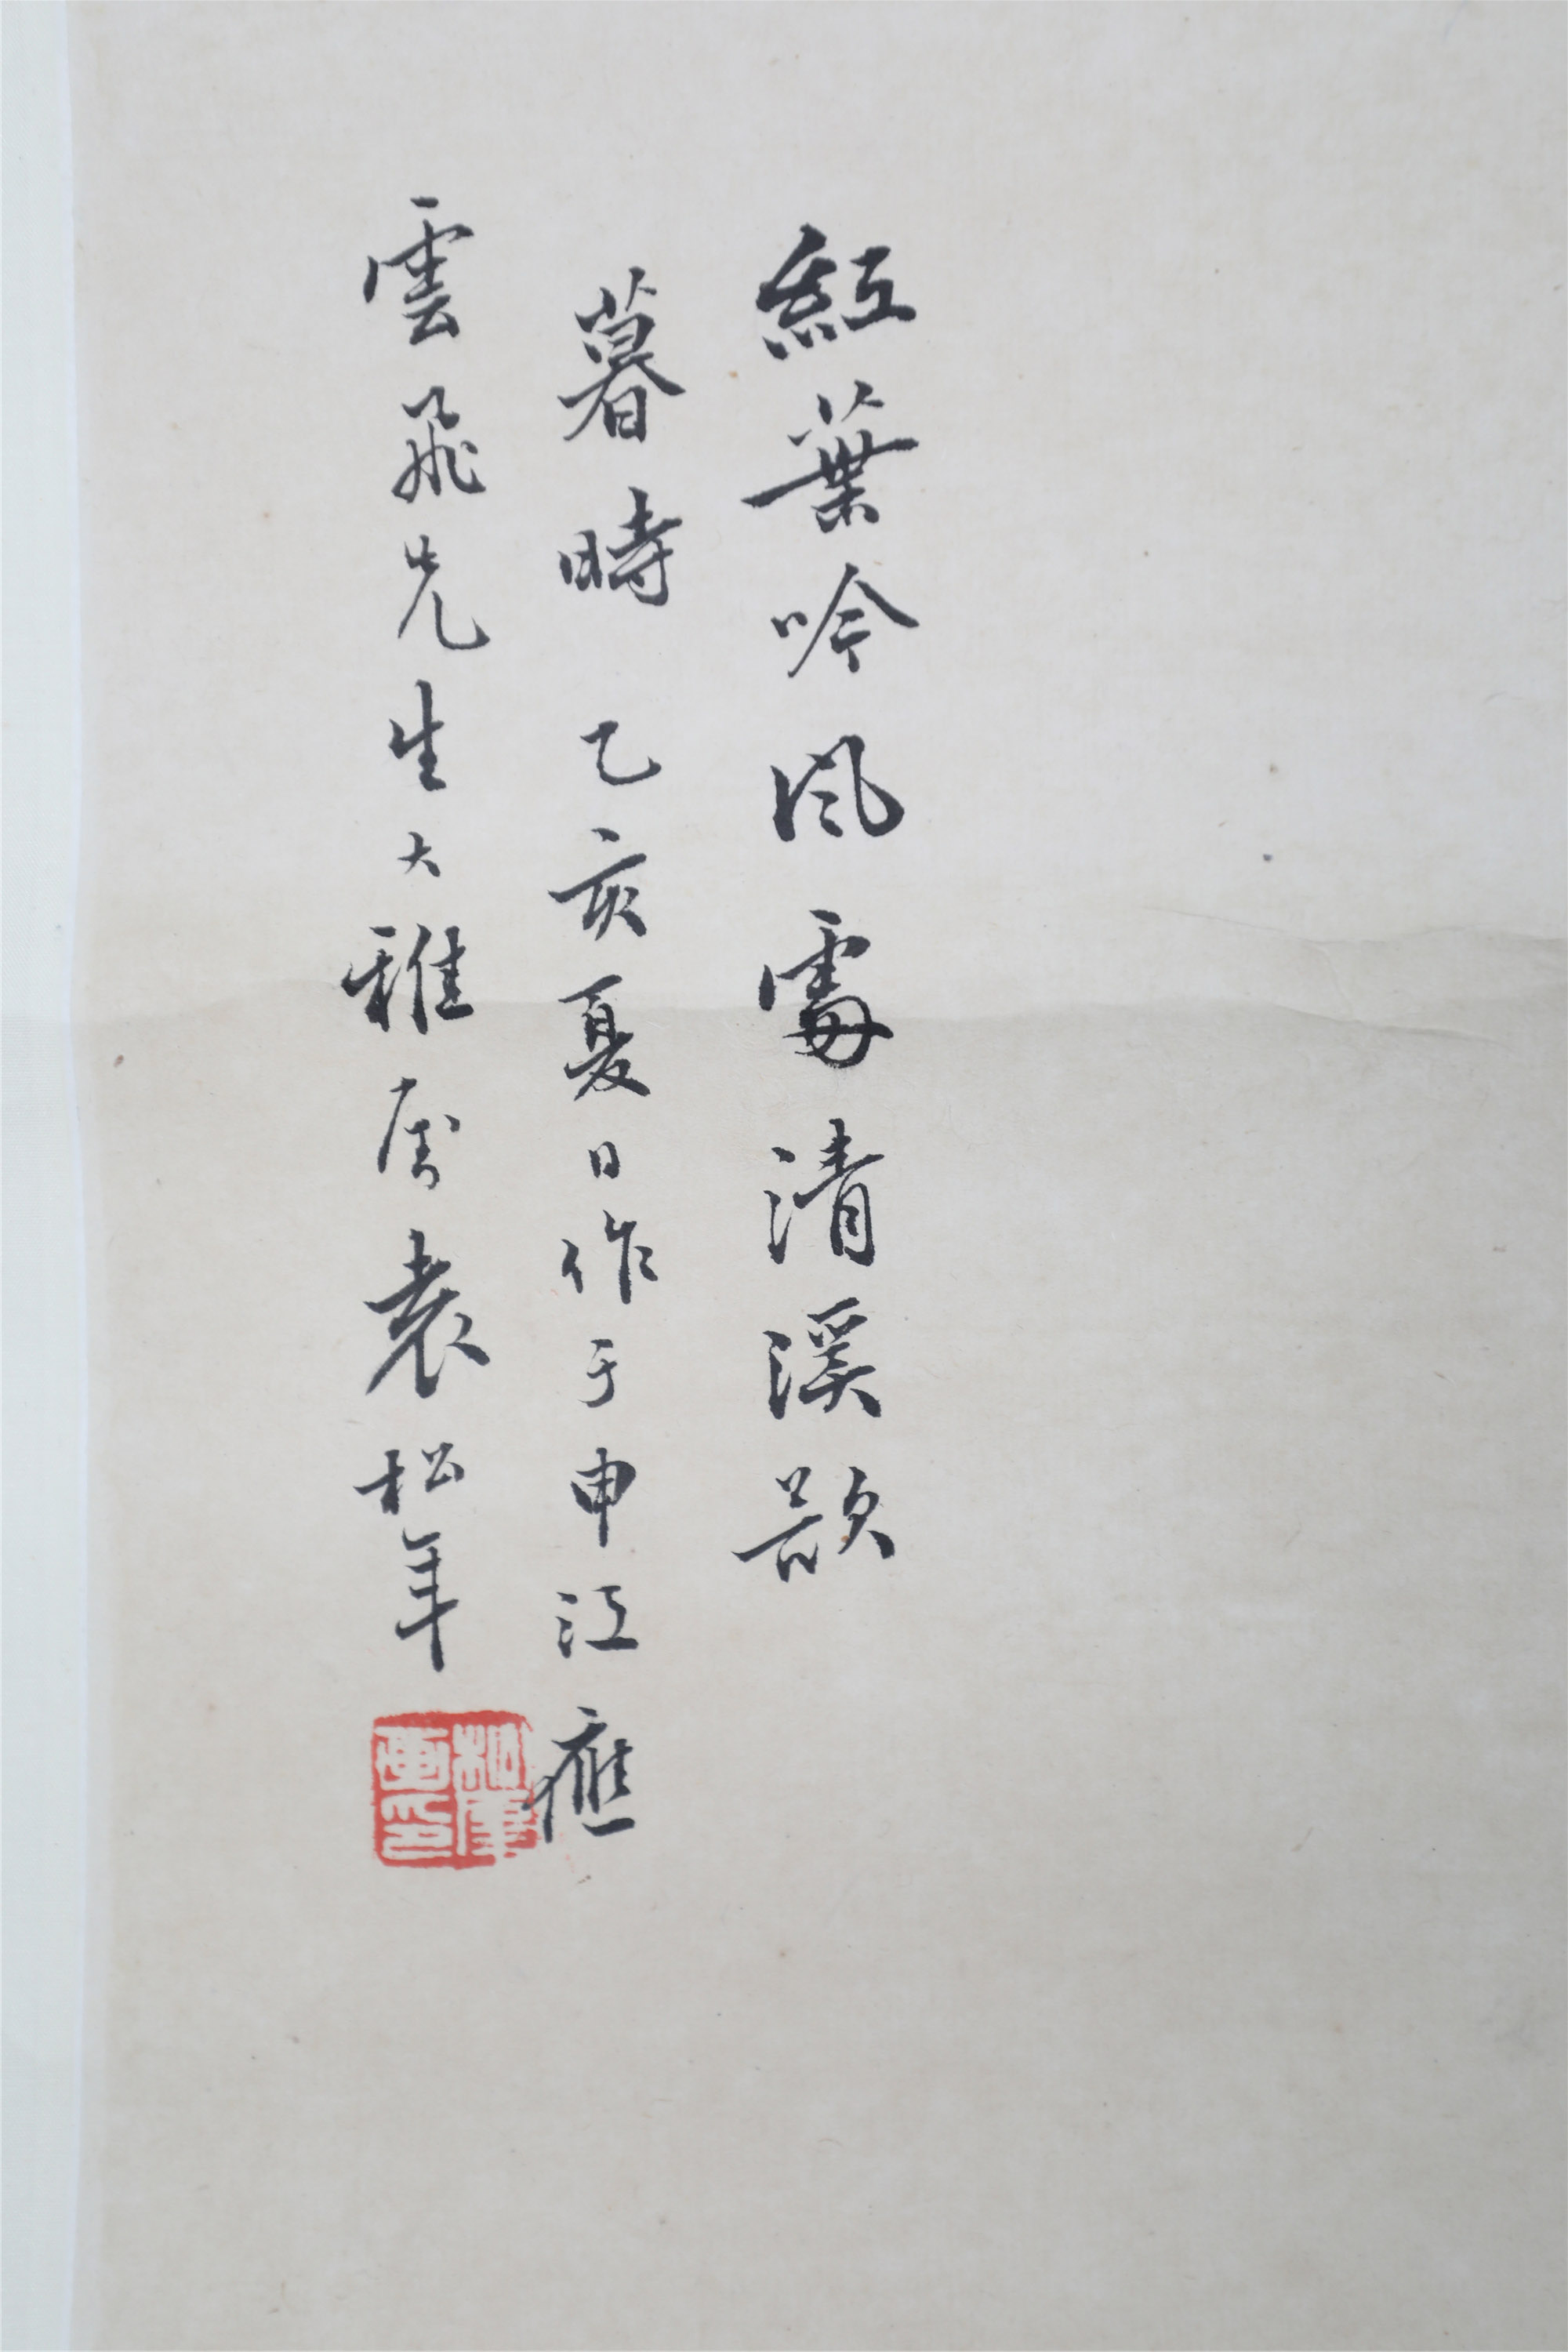 紅葉吟風清溪欲
暮時 乙亥夏日作于申江應
雲飛先生大雅属 袁松年
松年畫印